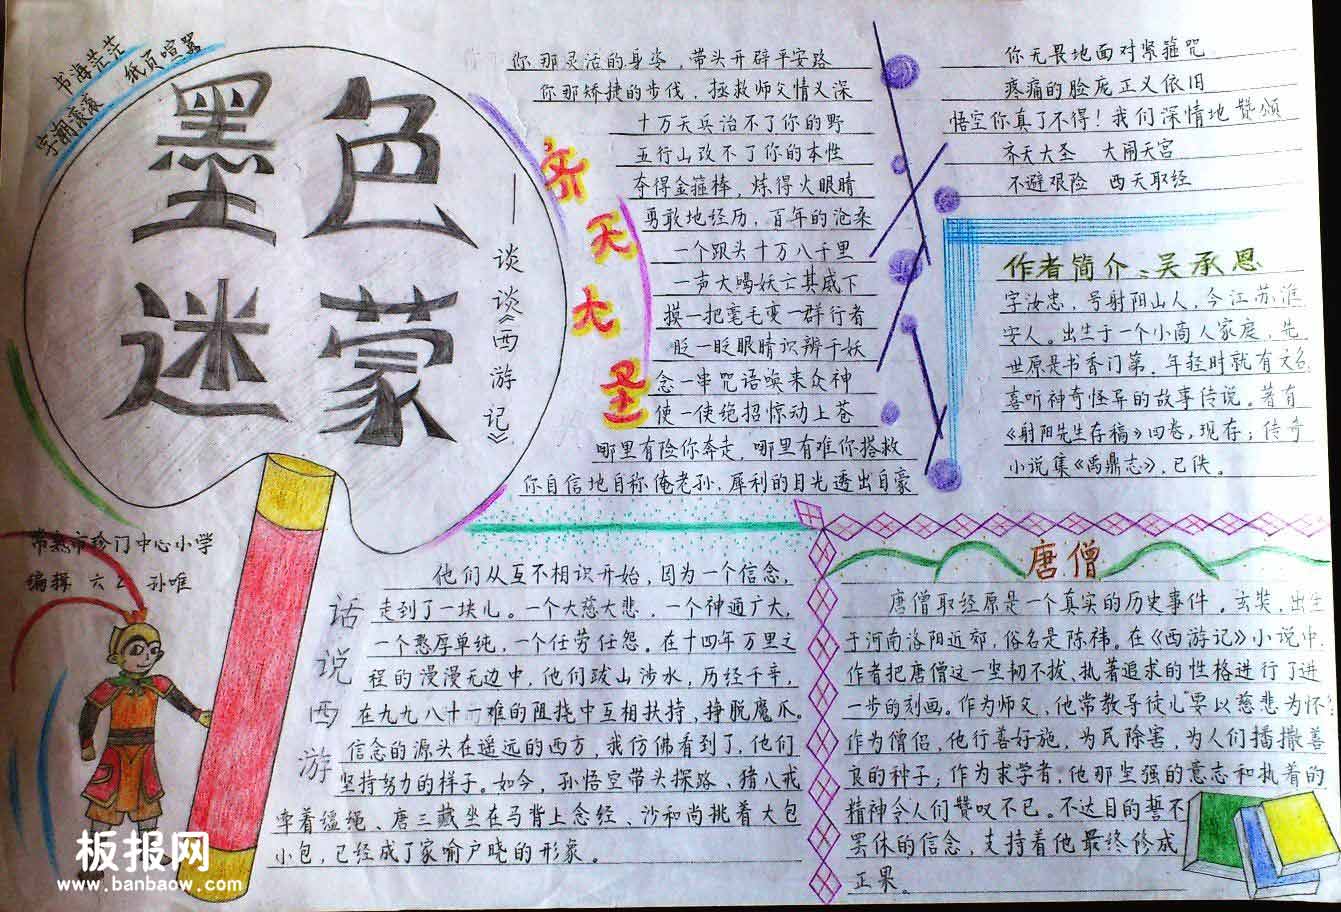 书海茫茫
纸页喧嚣
墨色
迷蒙
——谈谈《西游记》
常熟市珍门中心小学
编辑 六乙 孙唯
齐天大圣
你那灵活的身姿，带头开辟平安路
你那矫捷的步伐，拯救师父情义深
十万天兵治不了你的野
五行山改不了你的本性
夺得金箍棒，炼得火眼睛
勇敢地经历，百年的沧桑
一个跟头十万八千里
一声大喝妖亡其威下
摸一把毫毛变一群行者
眨一眨眼睛识辨千妖
念一串咒语唤来众神
使一使绝招惊动上苍
哪里有险你奔走，哪里有难你搭救
你自信地自称俺老孙，犀利的目光透出自豪
你无畏地面对紧箍咒
疼痛的脸庞正义依旧
悟空你真了不得！我们深情地赞颂
齐天大圣 大闹天宫
不避艰险 西天取经
作者简介：吴承恩
字汝忠，号射阳山人，今江苏淮
安人。出生于一个小商人家庭，先
世原是书香门第，年轻时就有文名
喜听神奇怪异的故事传说。著有
《射阳先生存稿》四卷，现存；传奇
小说集《禹鼎志》，已佚。
话说西游
他们从互不相识开始，因为一个信念，
走到了一块儿。一个大慈大悲，一个神通广大，
一个憨厚单纯，一个任劳任怨。在十四年万里之
程的漫漫无边中，他们跋山涉水，历经千辛，
在九九八十一难的阻挠中互相扶持，挣脱魔爪。
信念的源头在遥远的西方，我仿佛看到了，他们
坚持努力的样子。如今，孙悟空带头探路、猪八戒
牵着缰绳、唐三藏坐在马背上念经、沙和尚挑着大包
小包，已经成了家喻户晓的形象。
唐僧
唐僧取经原是一个真实的历史事件。玄奘，出生
于河南洛阳近郊，俗名是陈祎。在《西游记》小说中，
作者把唐僧这一坚韧不拔、执著追求的性格进行了进
一步的刻画。作为师父，他常教导徒儿要以慈悲为怀；
作为僧侣，他行善好施，为民除害，为人们播撒善
良的种子；作为求学者，他那坚强的意志和执着的
精神令人们赞叹不已。不达目的誓不
罢休的信念，支持着他最终修成
正果。
板报网
www.banbaow.com